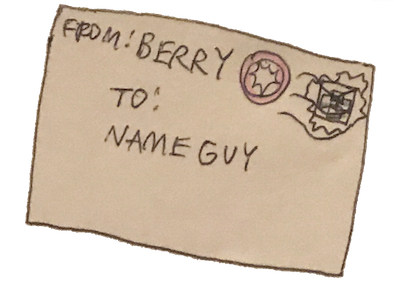 FROM: BERRY
TO:
NAME GUY